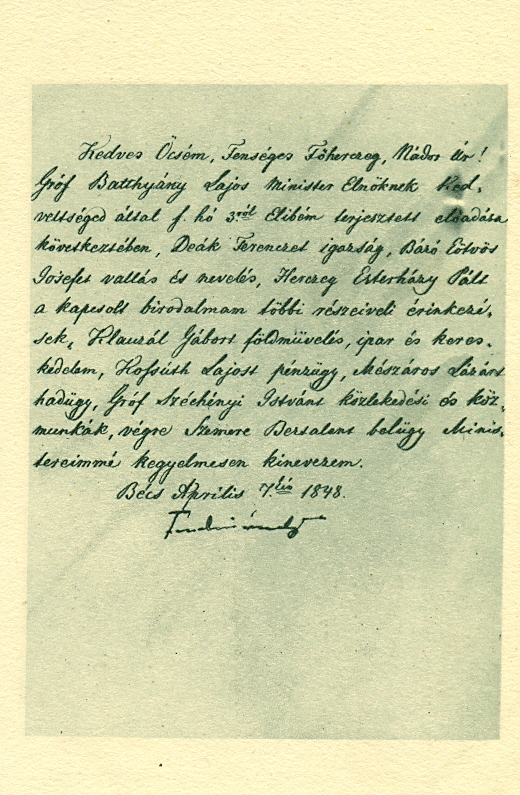 Kedves Öcsém, Fenséges Főherczeg, Nádor Úr!
Gróf Batthyány Lajos Minister Elnöknek Ked-
veltséged által f. hó 3ról Elibém terjesztett előadása
következtében, Deák Ferenczet igazság, Báró Eötvös
Josefet vallás és nevelés, Herczeg Esterházy Pált
a kapcsolt birodalmam többi részeiveli érinkezé-
sek, Klauzál Gábort földművelés, ipar és keres-
kedelem, Kossúth Lajost pénzügy, Mészáros Lázárt
hadügy, Gróf Széchényi Istvánt közlekedési és köz-
munkák, végre Szemere Bertalant belügy Minis-
tereimmé kegyelmesen kinevezem.
Bécs Április 7.kén 1848.